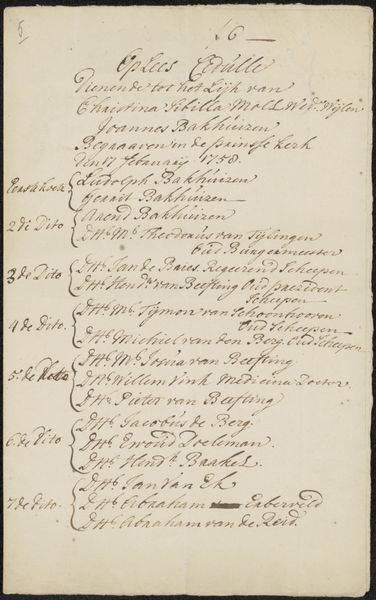 6
Op Lees Cedulle
Dienende tot het Lijk van
Christina Sibilla Moll Wed.e Wijlen
Joannes Bakhuizen
Begraaven in de prinse kerk
den 17 February 1758.
Eerste koets Ludolph Bakhuizen
Gerrit Bakhuizen
2 de Dito Arend Bakhuizen
D Hr. Mr. Theodorus van Tijlingen
Oud Burgermeester
3 de Dito D Hr. Jan de Raies. Regeerend Scheepen
D Hr. Hend.k van Beefting Oud president
Scheepen
4 de Dito. D Hr. Mr. Tijmon van Schoonhoven
Oud Scheepen
D Hr. Michiel van den Berg Oud Scheepen
5 de Dito D Hr. Mr. Josua van Beefting
D Hr. Willem Vink Medicina Doctor
D Hr. Pieter van Beefting
6 de Dito D Hr. Jacobus de Berg
D Hr. Ewoud Doeleman.
D Hr. Hend.k Baakel.
7 de Dito. D Hr. Jan van Ek
D Hr. Abraham Enberveld
D Hr. Abraham van de Reid.